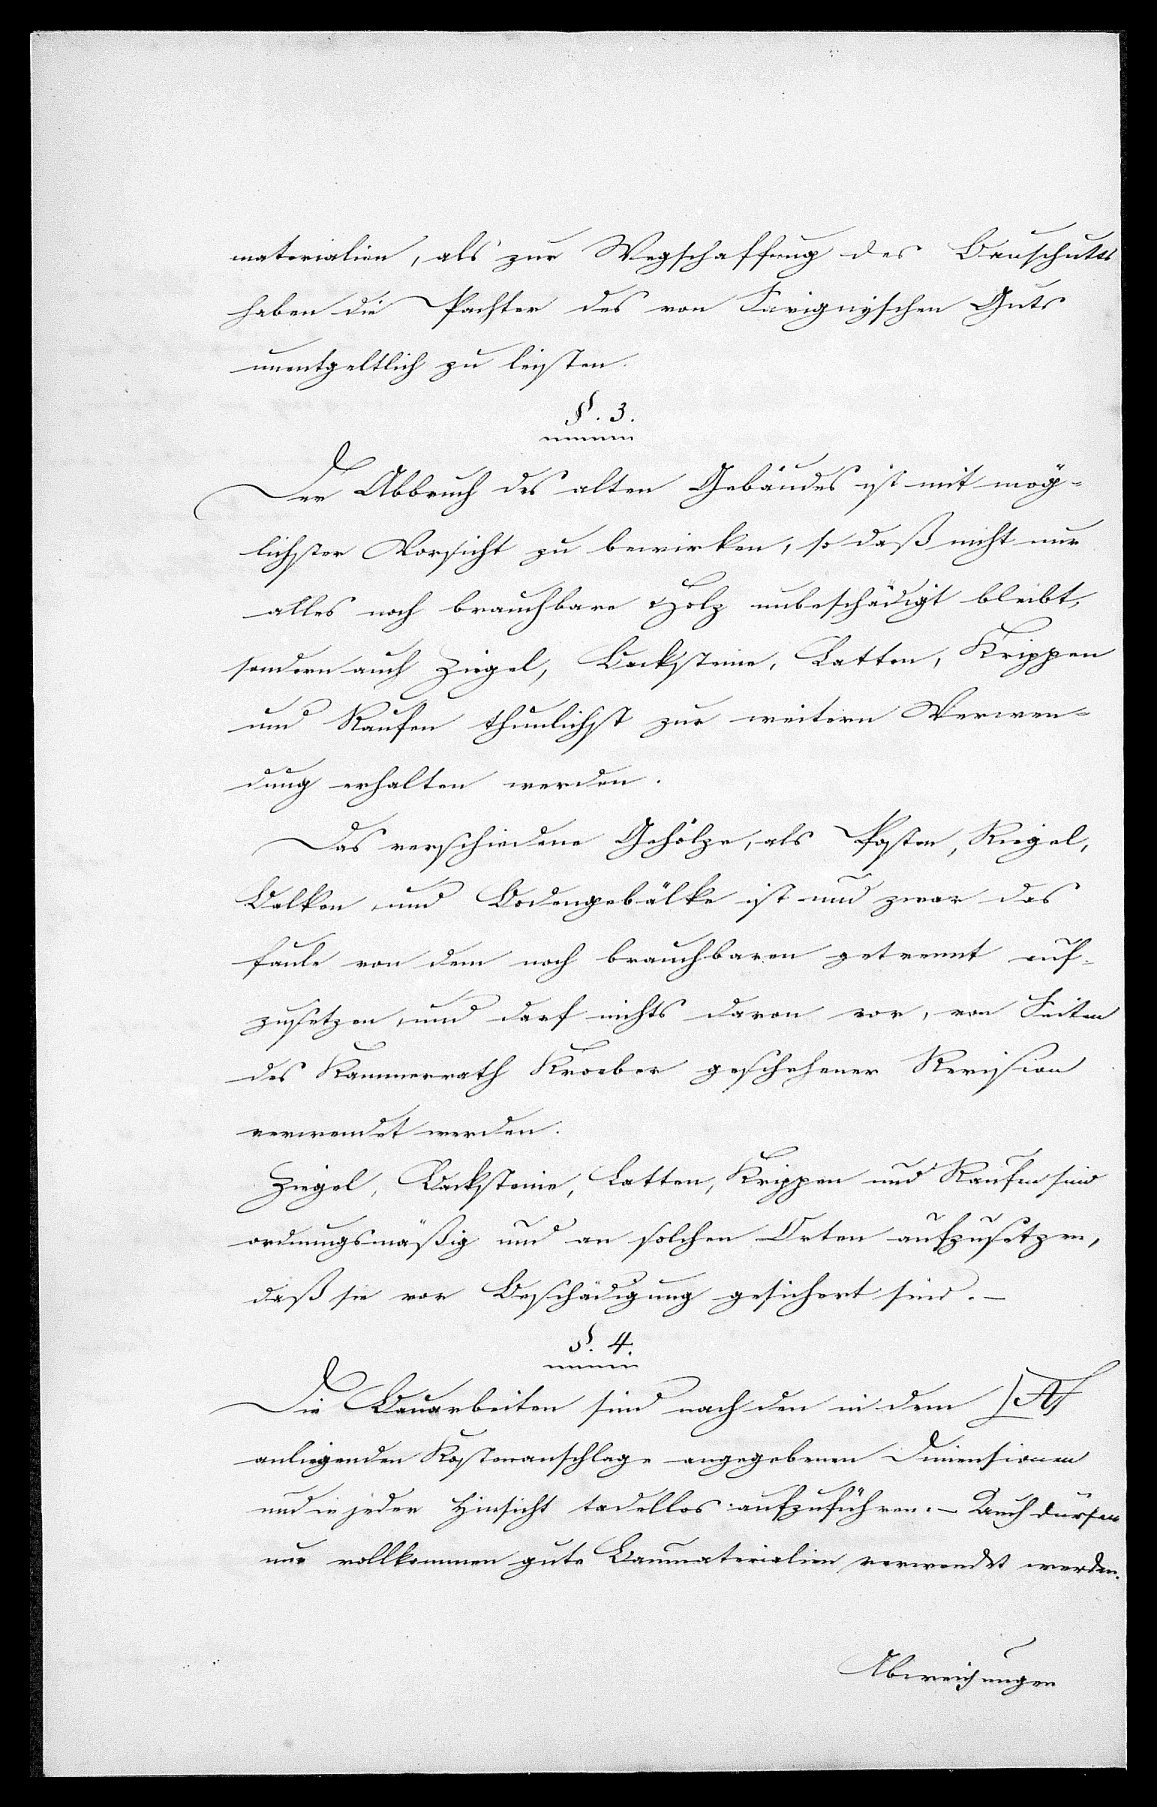 materialien, als zur Wegschaffung des Bauschutts
haben die Pachter des von Savignyschen Guts
unentgeltlich zu leisten.
§. 3.
Der Abbruch des alten Gebäudes ist mit mög-
lichster Vorsicht zu bewirken, so daß nicht nur
alles noch brauchbare Holz unbeschädigt bleibt,
sondern auch Ziegel, Backsteine, Latten, Krippen
und Raufen thunlichst zur weitern Verwen-
dung erhalten werden.
Das verschiedene Gehölze, als Pfosten, Riegel,
Balken und Bodengebälke ist und zwar das
faule von dem noch brauchbaren getrennt auf-
zusetzen, und darf nichts davon vor, von Seiten
des Kammerrath Kroeber geschehener Revision
verwendet werden.
Ziegel, Backsteine, Latten, Krippen und Raufen sind
ordnungsmäßig und an solchen Orten aufzusetzen,
daß sie vor Beschädigung gesichert sind. –
§. 4.
Die Bauarbeiten sind nach den in dem [A]
anliegenden Kostenanschlage angegebenen Dimensionen
und in jeder Hinsicht tadellos aufzuführen. – Auch dürfen
nur vollkommen gute Baumaterialien verwendet werden.
Abweichungen